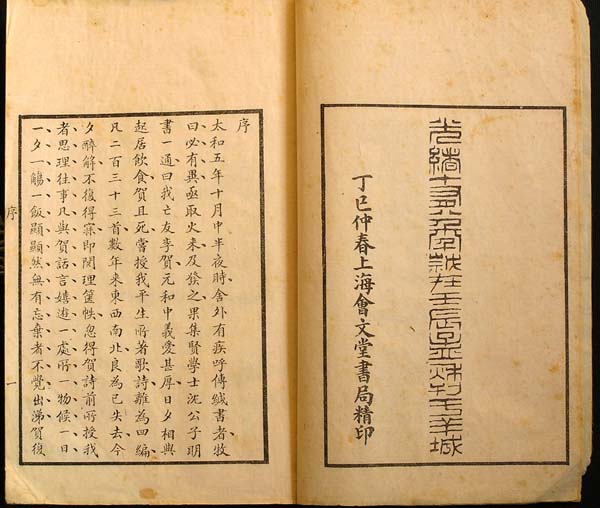 光緒十有八年歲在壬辰刊于羊城
丁巳仲春上海會文堂書局精印
序
太和五年十月中半夜時舍外有疾呼傳緘書者牧
曰必有異亟取火來及發之果集賢學士沈公子明
書一通曰我亡友李賀元和中義愛甚厚日夕相與
起居飲食賀且死嘗授我平生所著歌詩離為四編
凡二百三十三首數年來東西南北良為已失去今
夕醉解不復得寐即閱理篋帙忽得賀詩前所授我
者思理往事凡與賀話言嬉遊一處所一物候一日
一夕一觴一飯顯顯然無有忘棄者不覺出涕賀復
序 一